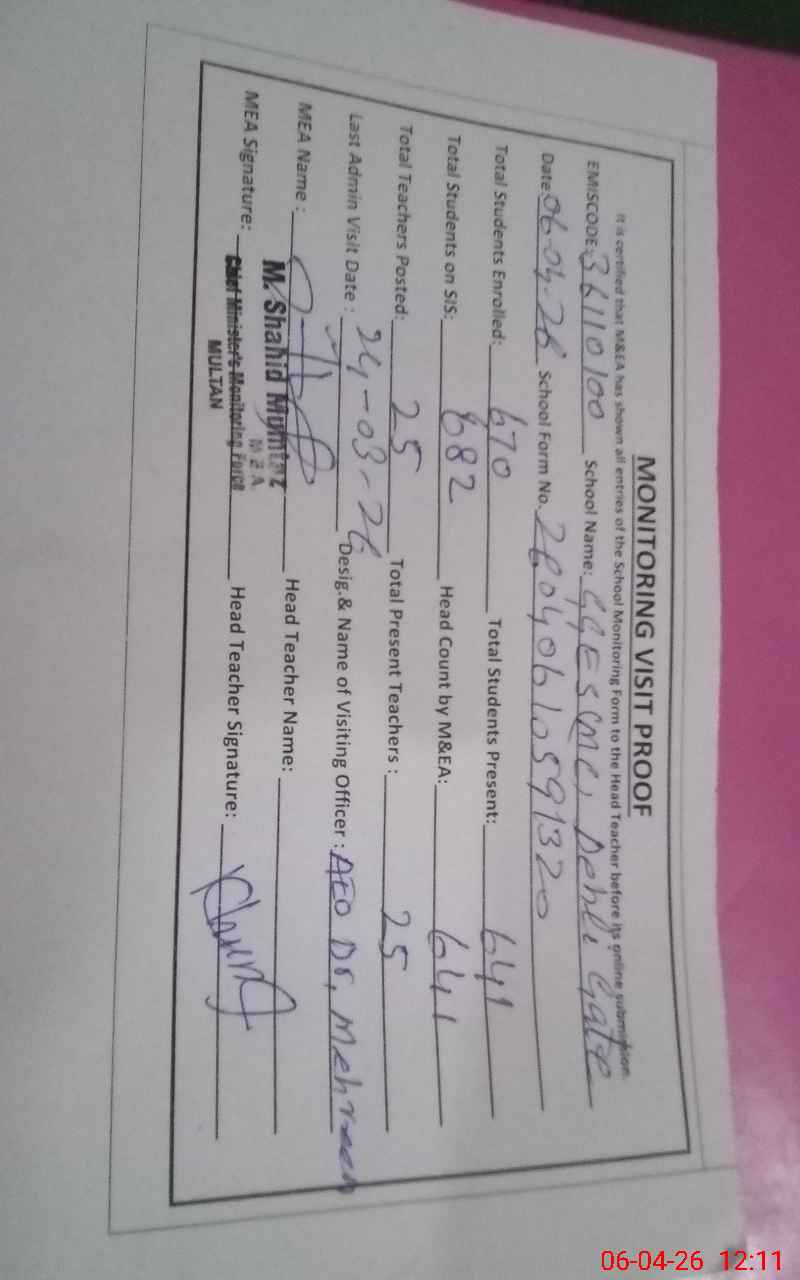 MONITORING VISIT PROOF
It is certified that M&EA has shown all entries of the School Monitoring Form to the Head Teacher before its online submission.
EMISCODE: 36110100 School Name: GGES (MC) Dehli Gate
Date: 06-04-26 School Form No. 26040610591320
Total Students Enrolled: 670 Total Students Present: 641
Total Students on SIS: 682 Head Count by M&EA: 641
Total Teachers Posted: 25 Total Present Teachers : 25
Last Admin Visit Date : 24-03-26 Desig.& Name of Visiting Officer : AEO Dr, Mehreen
MEA Name : Head Teacher Name:
M. Shahid Mumtaz
M E A
MEA Signature: Head Teacher Signature:
Chief Minister's Monitoring Force
MULTAN
06-04-26 12:11